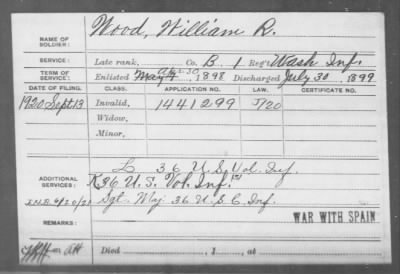 NAME OF SOLDIER: Wood, William R.
SERVICE: Late rank, Co. B. 1 Reg't Wash Inf.
Apr 30
TERM OF SERVICE: Enlisted May 4, 1898 Discharged July 30, 1899
DATE OF FILING. CLASS. APPLICATION NO. LAW. CERTIFICATE NO.
1920 Sept. 13 Invalid, 1441299 5/20
Widow,
Minor,
L 36 U. S. Vol. Inf.
ADDITIONAL SERVICES: K 36 U. S. Vol. Inf.
Sgt. Maj. 36 U. S. Inf.
REMARKS: WAR WITH SPAIN
Died , 1 , at